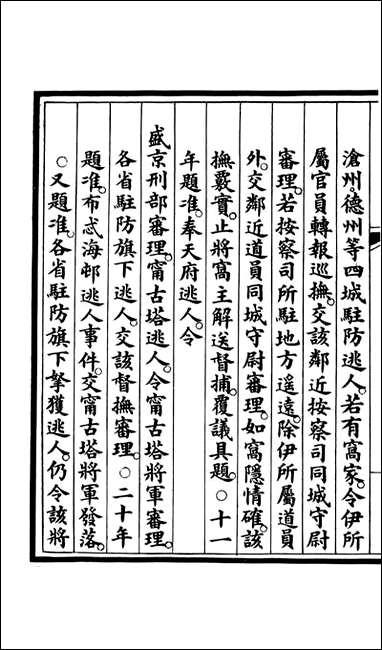 滄州。德州等四城駐防逃人。若有窩家。令伊所
屬官員轉報巡撫。交該鄰近按察司同城守尉
審理。若按察司所駐地方遥遠。除伊所屬道員
外。交鄰近道員同城守尉審理。如窩隱情確。該
撫覈實。止將窩主解送督捕。覆議具題。○十一
年題准。奉天府逃人。令
盛京刑部審理。甯古塔逃人。令甯古塔將軍審理。
各省駐防旗下逃人。交該督撫審理。○二十年
題准。布忒海邨逃人事件。交甯古塔將軍發落。
○又題准。各省駐防旗下拏獲逃人。仍令該將